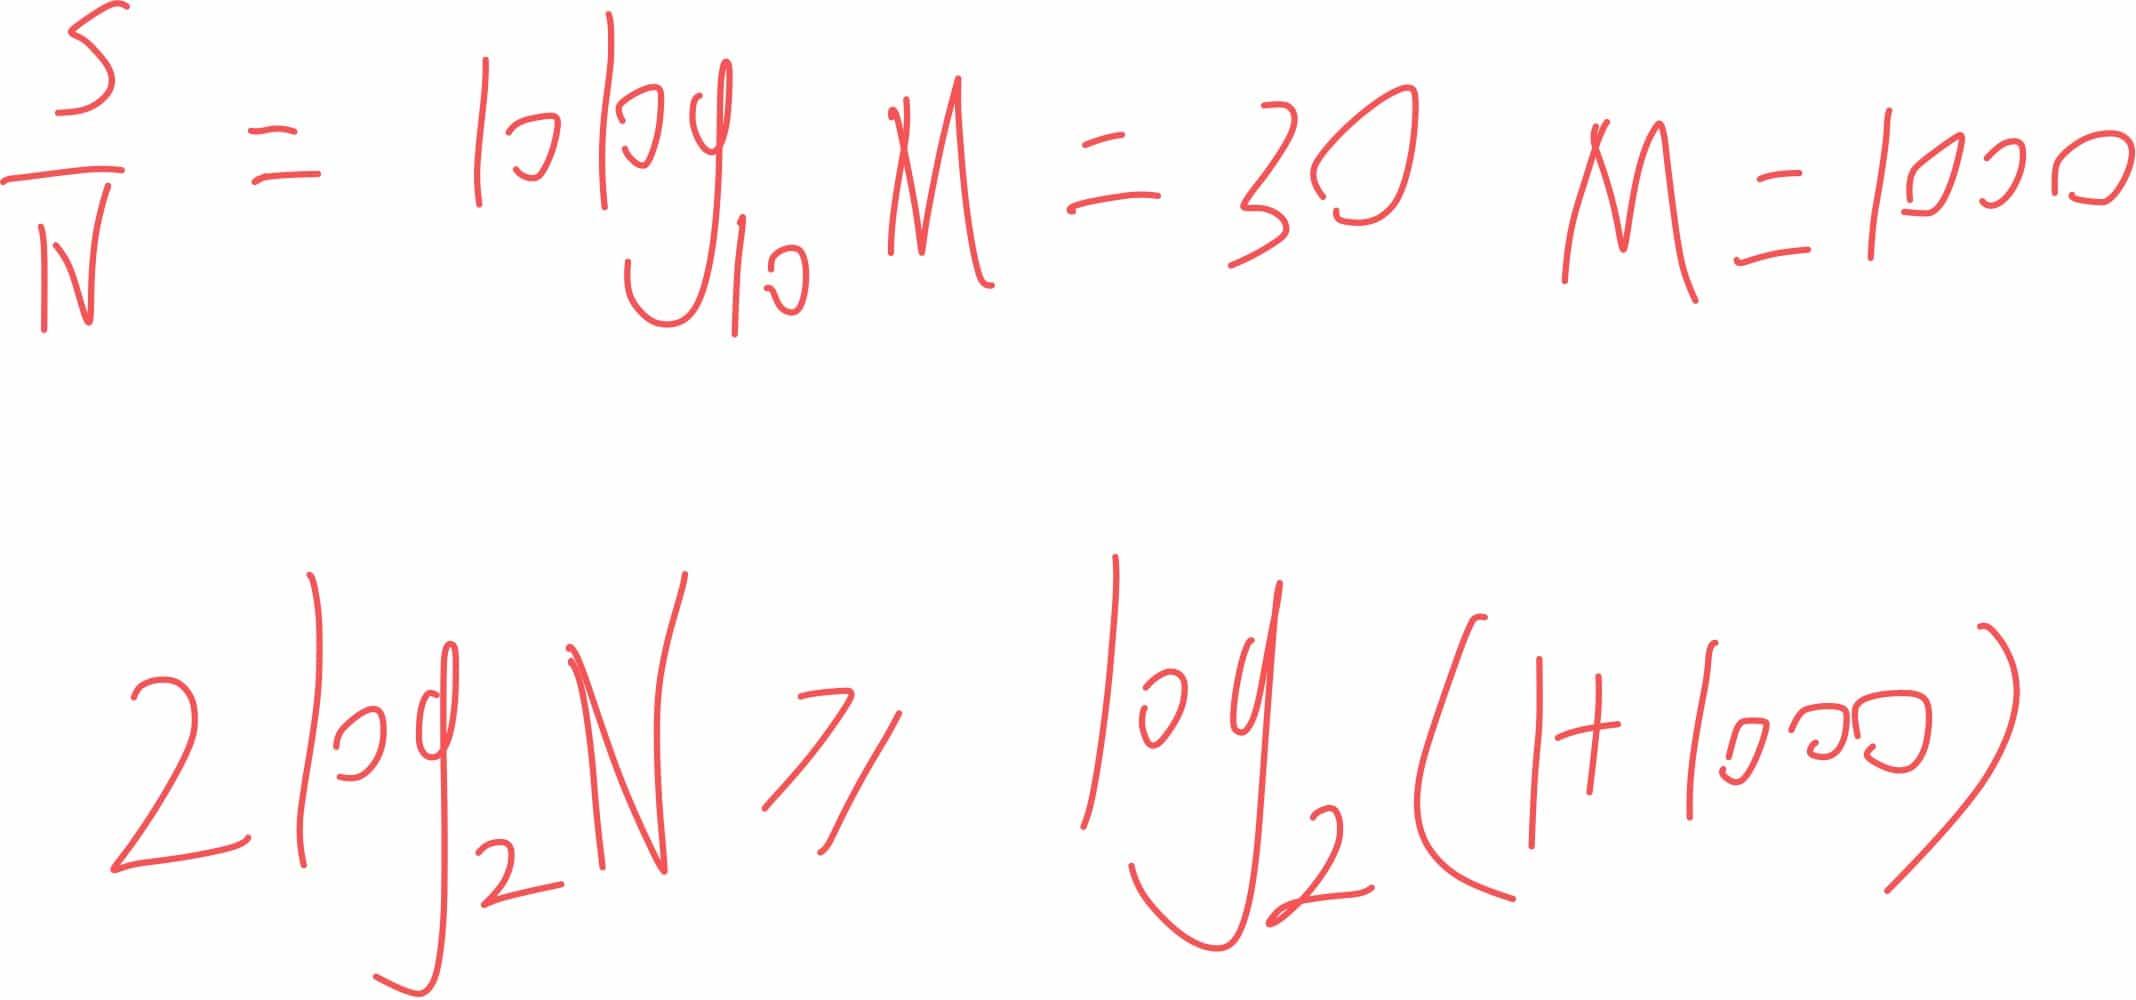 S/N = 10 log₁₀ M = 30 M = 1000
2 log₂ N ⩾ log₂ (1+1000)